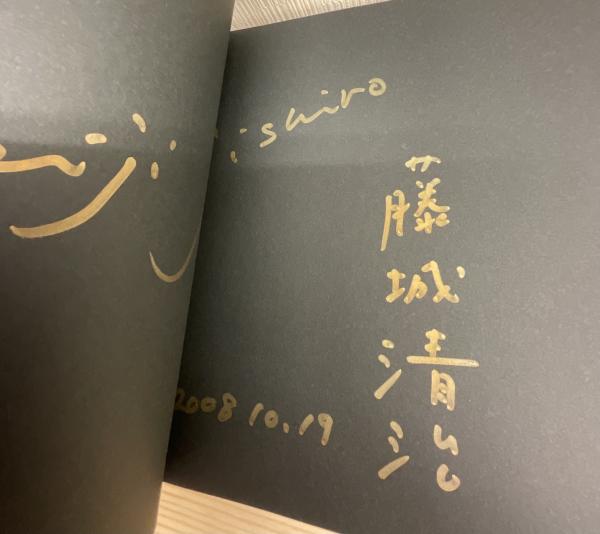 ishiro
藤城清治
2008 10.19